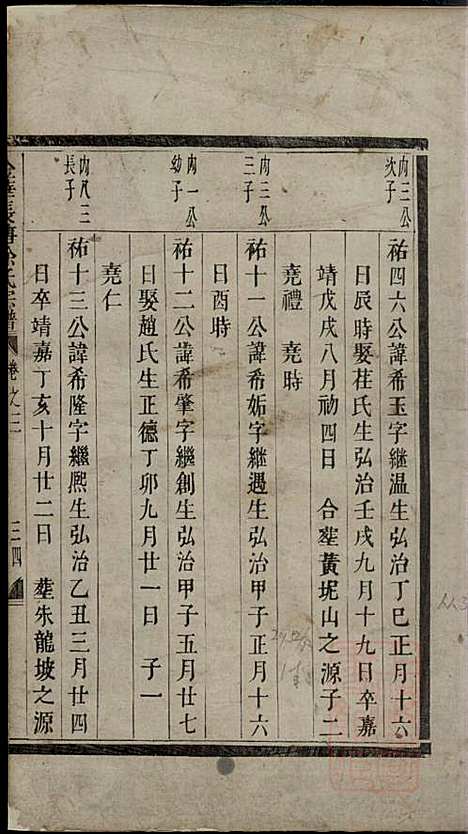 内三公次子
祐四六公諱希玉字継温生弘治丁巳正月十六
日辰時娶荏氏生弘治壬戌九月十九日卒嘉
靖戊戌八月初四日　合塟黃坭山之源子二
堯禮　堯時
内三公三子
祐十一公諱希姤字継遇生弘治甲子正月十六
日酉時
内一公幼子
祐十二公諱希肇字繼創生弘治甲子五月廿七
日娶趙氏生正德丁卯九月廿一日　子一
堯仁
内八三長子
祐十三公諱希隆字繼熙生弘治乙丑三月廿四
日卒靖嘉丁亥十月廿二日　塟朱龍坡之源
氏宗譜　卷之二　三四